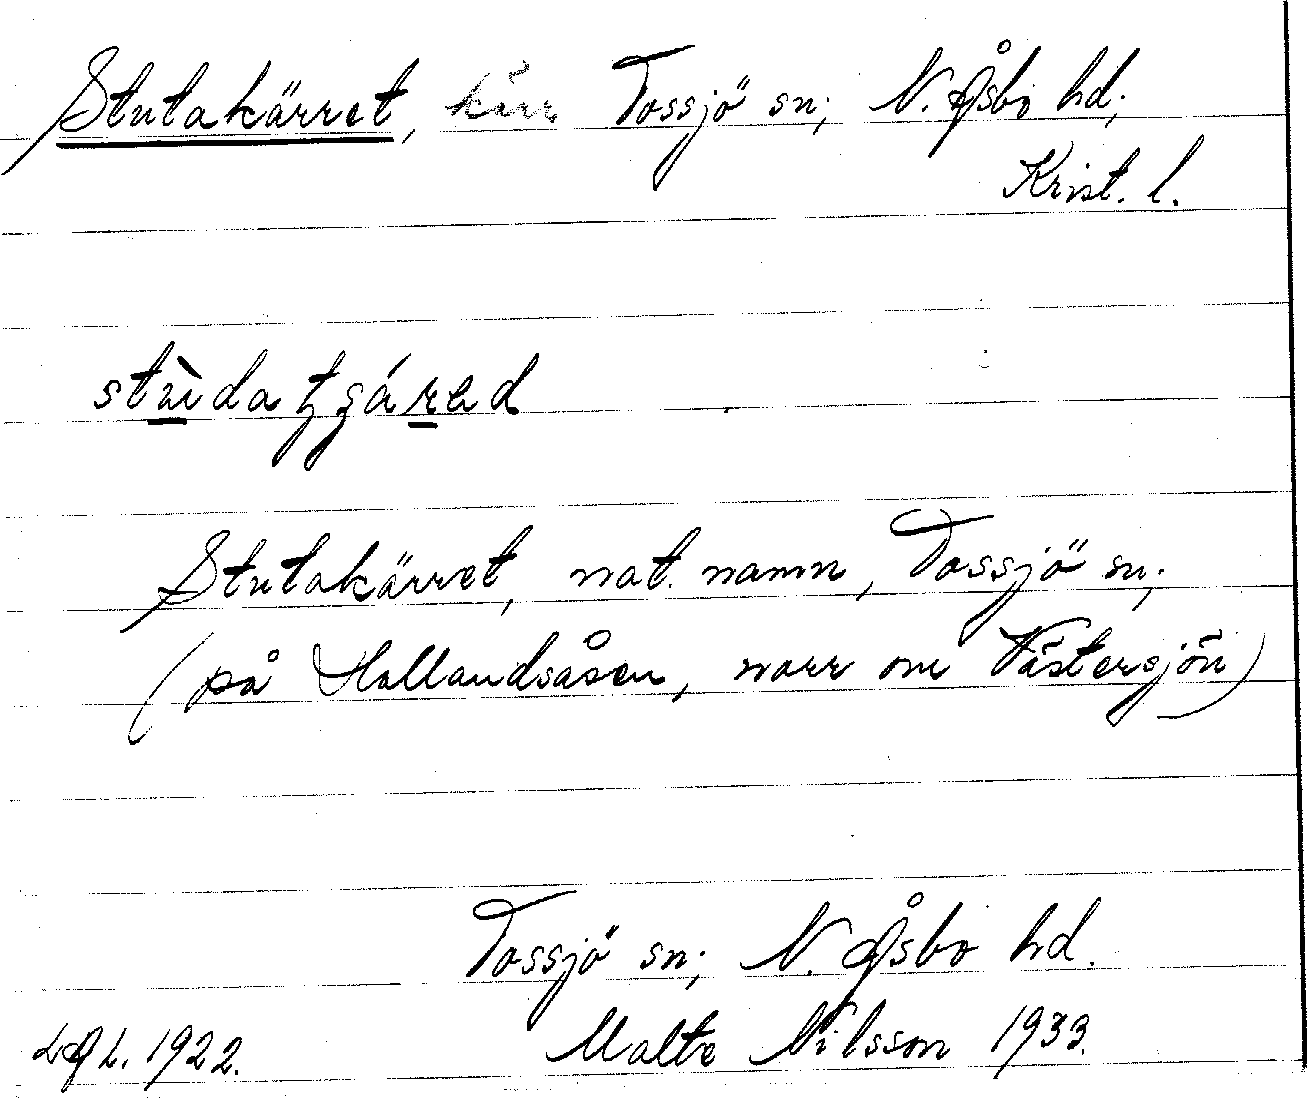 Stutakärret, kärr Tossjö sn; N. Åsbo hd;
Krist. l.
Stutakärret, nat. namn, Tossjö sn;
(på Hallandsåsen, norr om Västersjön)
Tossjö sn; N. Åsbo hd.
LAL. 1922. Malte Nilsson 1933.